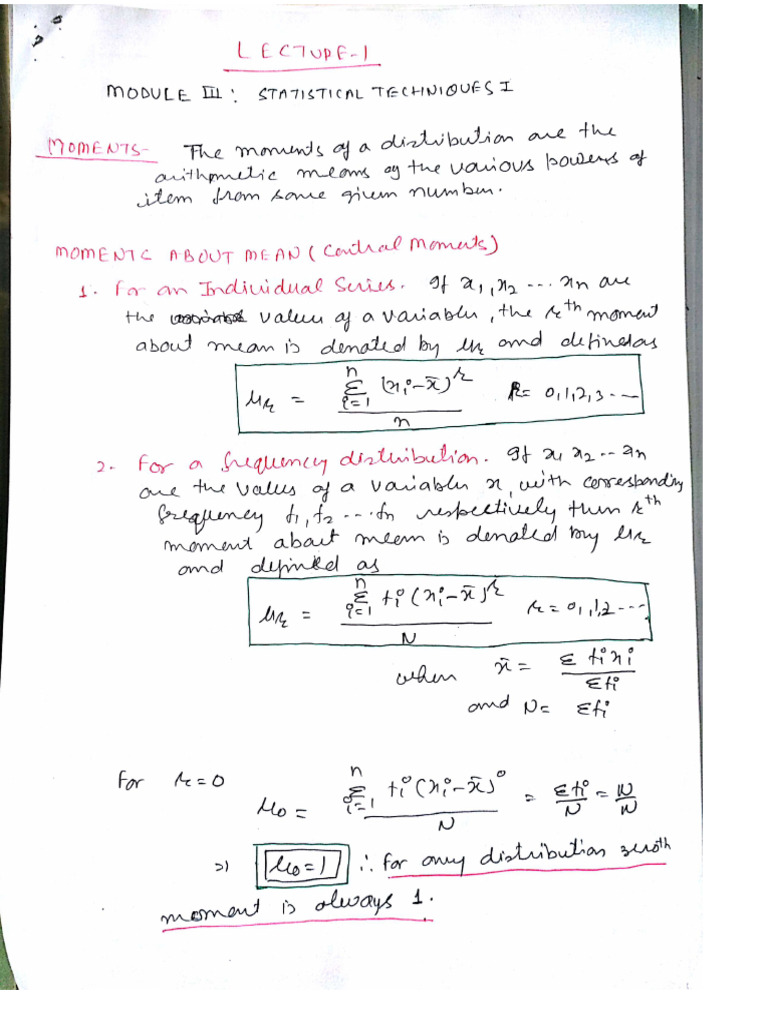 LECTURE-1
MODULE III: STATISTICAL TECHNIQUES I
MOMENTS- The moments of a distribution are the
arithmetic means of the various powers of
item from some given number.
MOMENTS ABOUT MEAN (Central Moments)
1. For an Individual Series. If x₁, x₂ --- xn are
the values of a variable, the rth moment
about mean is denoted by μr and defined as
μr = Σ_{i=1}^{n} (xi-x̄)^r / n    r = 0,1,2,3 ----
2. For a frequency distribution. If x₁ x₂ -- xn
are the values of a variable x, with corresponding
frequency f₁, f₂ --- fn respectively then rth
moment about mean is denoted by μr
and defined as
μr = Σ_{i=1}^{n} fi (xi-x̄)^r / N    r = 0,1,2 ---
when x̄ = Σ fi xi / Σ fi
and N = Σ fi
For r=0    μ₀ = Σ_{i=1}^{n} fi (xi-x̄)^0 / N = Σ fi / N = N/N
⇒) μ₀=1 ∴ for any distribution zeroth
moment is always 1.